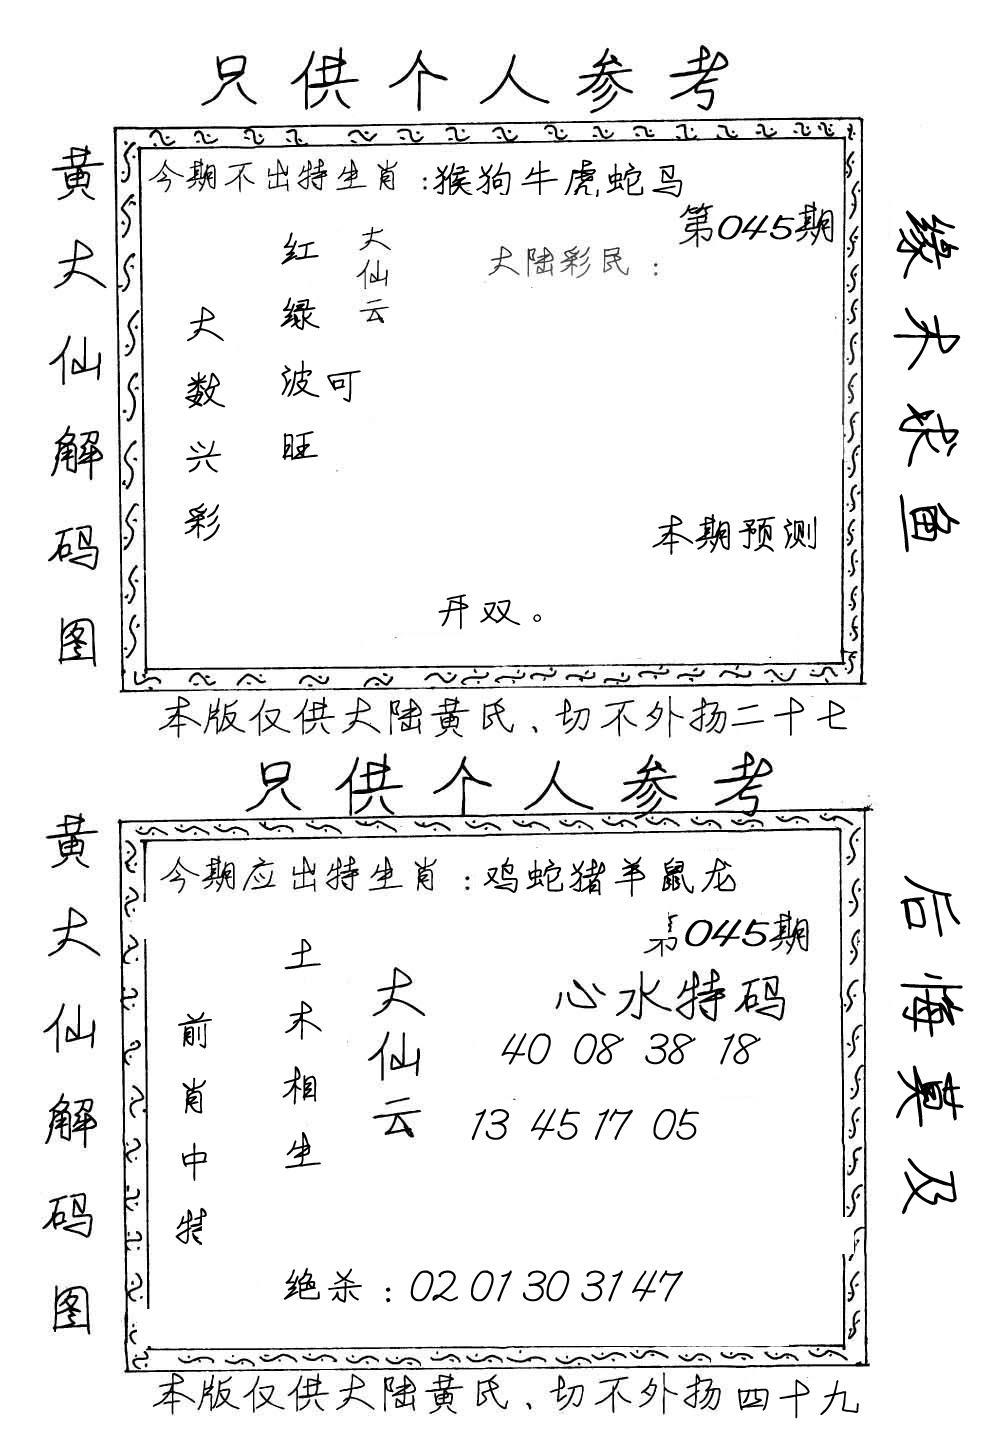 只供个人参考
黄大仙解码图
今期不出特生肖:猴狗牛虎蛇马
第045期
大陆彩民:
大仙云
红绿波旺
可
大数兴彩
本期预测
开双。
缘木求鱼
本版仅供大陆黄氏、切不外扬二十七
只供个人参考
黄大仙解码图
今期应出特生肖:鸡蛇猪羊鼠龙
第045期
心水特码
40 08 38 18
13 45 17 05
大仙云
土木相生
前肖中特
绝杀:02 01 30 31 47
后悔莫及
本版仅供大陆黄氏、切不外扬四十九